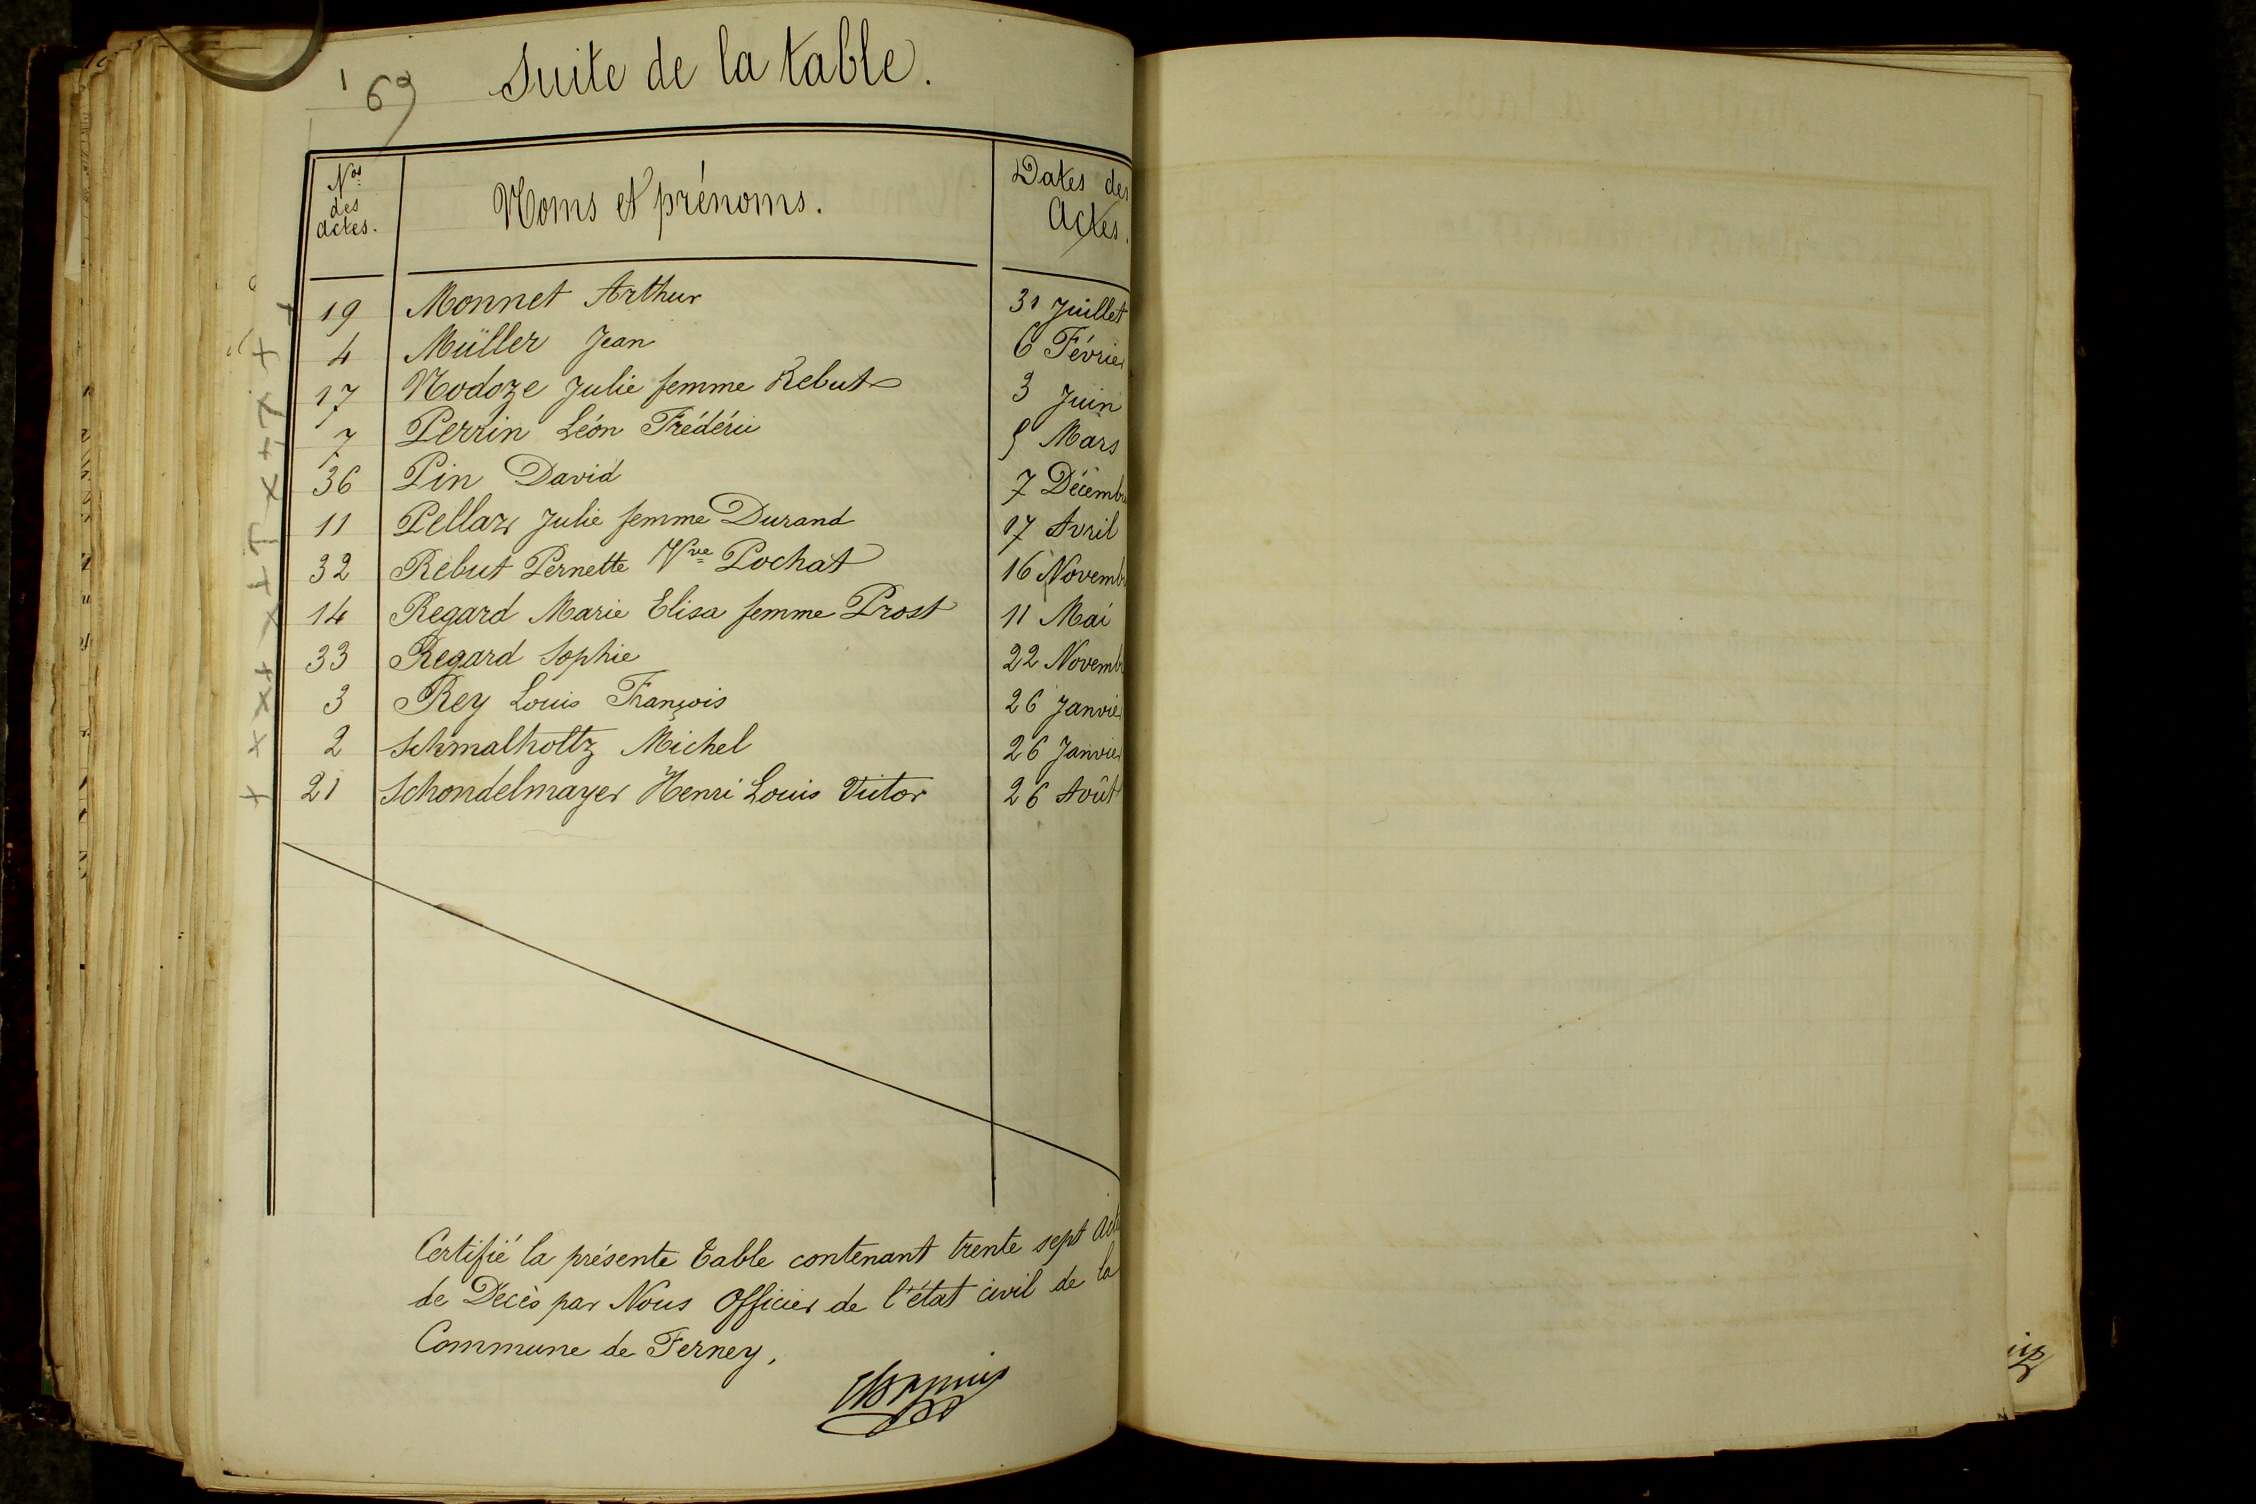 169
Suite de la table.
Nos des actes. Noms et prénoms. Dates des Actes.
19 Monnet Arthur 31 Juillet
4 Müller Jean 6 Février
17 Nodoze Julie femme Rebut 3 Juin
7 Perrin Léon Frédéric 5 Mars
36 Pin David 7 Décemb
11 Pellaz Julie femme Durand 17 Avril
32 Rebut Pernette Vve Pochat 16 Novemb
14 Regard Marie Elisa femme Prost 11 Mai
33 Regard Sophie 22 Novemb
3 Rey Louis François 26 Janvier
2 Schmalholtz Michel 26 Janvier
21 Schondelmayer Henri Louis Victor 26 Août
Certifié la présente table contenant trente sept act
de Décès par Nous Officier de l'état civil de la
Commune de Ferney.